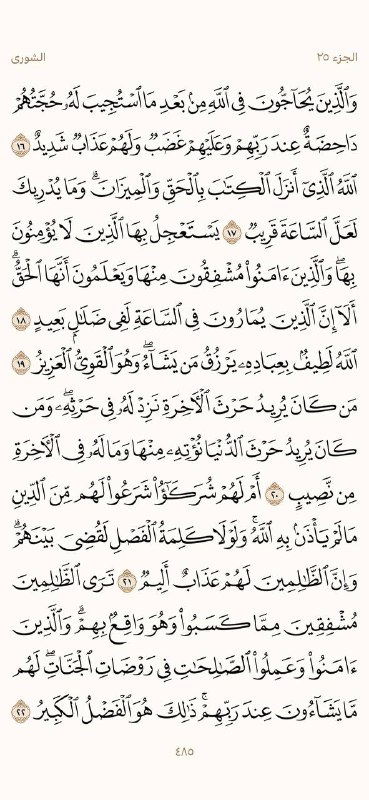 الجزء ٢٥
الشورى
وَٱلَّذِينَ يُحَآجُّونَ فِى ٱللَّهِ مِنۢ بَعْدِ مَا ٱسْتُجِيبَ لَهُۥ حُجَّتُهُمْ
دَاحِضَةٌ عِندَ رَبِّهِمْ وَعَلَيْهِمْ غَضَبٌ وَلَهُمْ عَذَابٌ شَدِيدٌ ١٦
ٱللَّهُ ٱلَّذِىٓ أَنزَلَ ٱلْكِتَٰبَ بِٱلْحَقِّ وَٱلْمِيزَانَۗ وَمَا يُدْرِيكَ
لَعَلَّ ٱلسَّاعَةَ قَرِيبٌ ١٧ يَسْتَعْجِلُ بِهَا ٱلَّذِينَ لَا يُؤْمِنُونَ
بِهَاۖ وَٱلَّذِينَ ءَامَنُوا۟ مُشْفِقُونَ مِنْهَا وَيَعْلَمُونَ أَنَّهَا ٱلْحَقُّۗ
أَلَآ إِنَّ ٱلَّذِينَ يُمَارُونَ فِى ٱلسَّاعَةِ لَفِى ضَلَٰلٍۭ بَعِيدٍ ١٨
ٱللَّهُ لَطِيفٌۢ بِعِبَادِهِۦ يَرْزُقُ مَن يَشَآءُۖ وَهُوَ ٱلْقَوِىُّ ٱلْعَزِيزُ ١٩
مَن كَانَ يُرِيدُ حَرْثَ ٱلْءَاخِرَةِ نَزِدْ لَهُۥ فِى حَرْثِهِۦۖ وَمَن
كَانَ يُرِيدُ حَرْثَ ٱلدُّنْيَا نُؤْتِهِۦ مِنْهَا وَمَا لَهُۥ فِى ٱلْءَاخِرَةِ
مِن نَّصِيبٍ ٢٠ أَمْ لَهُمْ شُرَكَٰٓؤُا۟ شَرَعُوا۟ لَهُم مِّنَ ٱلدِّينِ
مَا لَمْ يَأْذَنۢ بِهِ ٱللَّهُۚ وَلَوْلَا كَلِمَةُ ٱلْفَصْلِ لَقُضِىَ بَيْنَهُمْۗ
وَإِنَّ ٱلظَّٰلِمِينَ لَهُمْ عَذَابٌ أَلِيمٌ ٢١ تَرَى ٱلظَّٰلِمِينَ
مُشْفِقِينَ مِمَّا كَسَبُوا۟ وَهُوَ وَاقِعٌۢ بِهِمْۗ وَٱلَّذِينَ
ءَامَنُوا۟ وَعَمِلُوا۟ ٱلصَّٰلِحَٰتِ فِى رَوْضَاتِ ٱلْجَنَّاتِۖ لَهُم
مَّا يَشَآءُونَ عِندَ رَبِّهِمْۚ ذَٰلِكَ هُوَ ٱلْفَضْلُ ٱلْكَبِيرُ ٢٢
٤٨٥